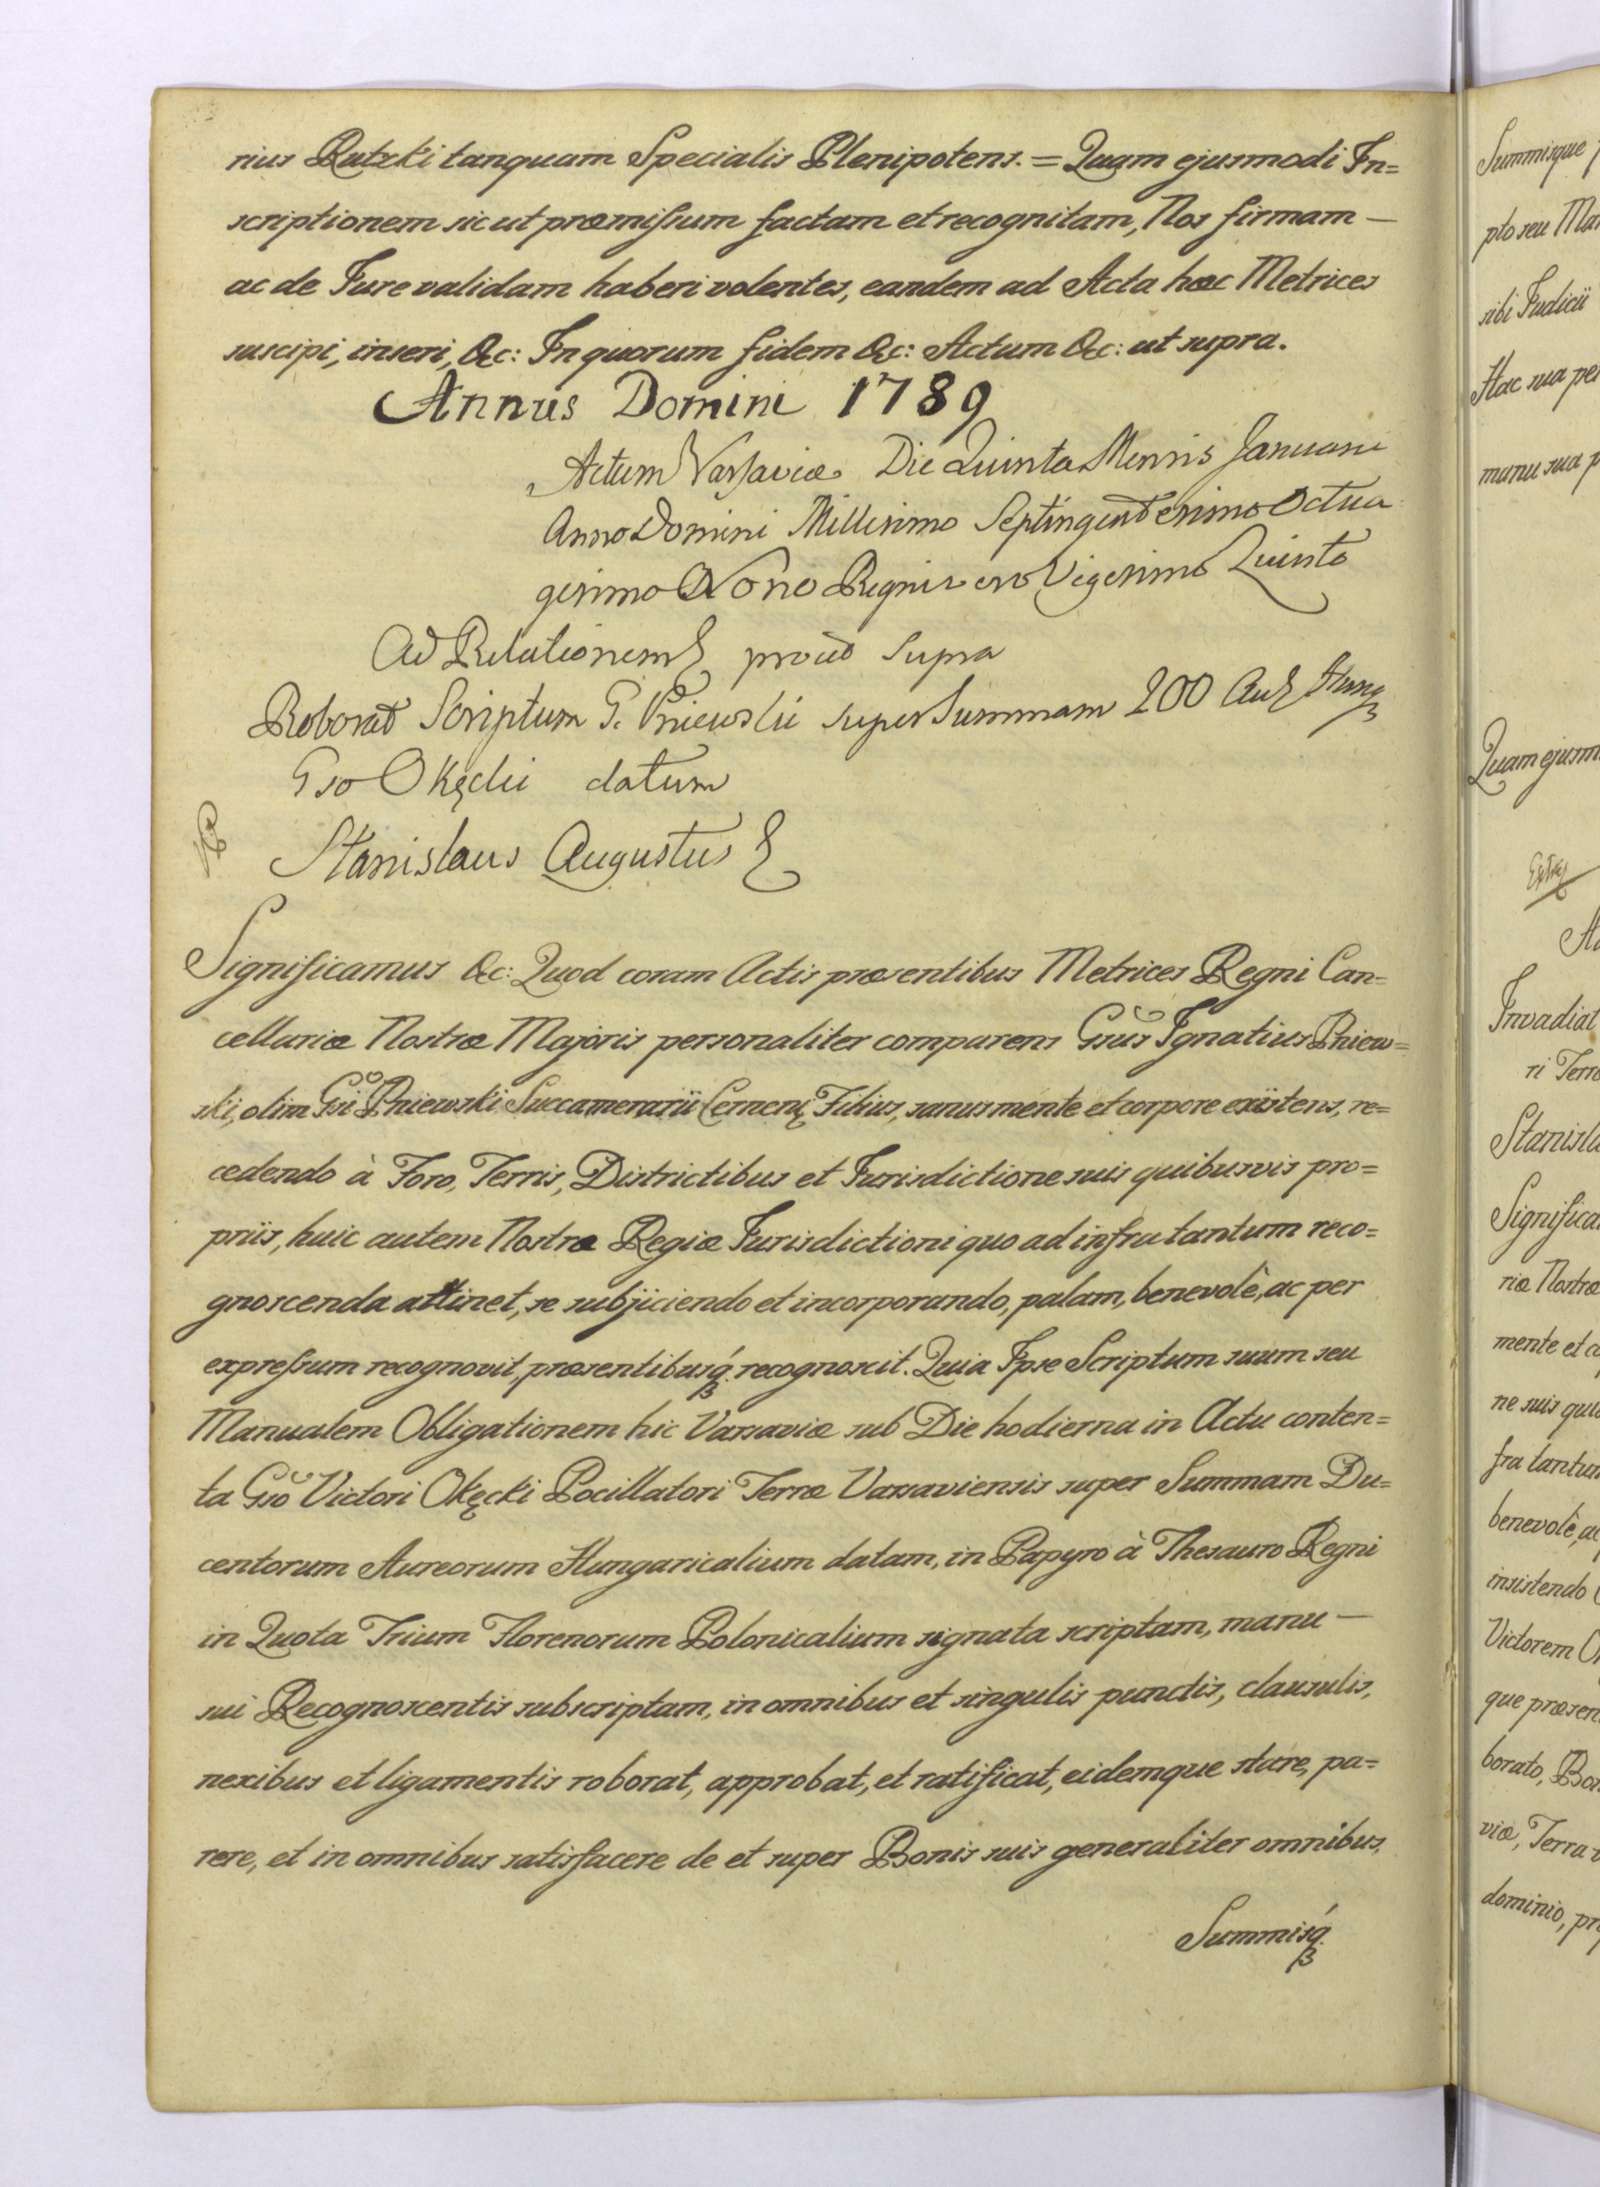 rius Rutzki tanquam Specialis Plenipotens. = Quam ejusmodi In=
scriptionem sicut præmissum factam et recognitam, Nos firmam —
ac de Jure validam haberi volentes, eandem ad Acta hæc Metrices
suscipi, inseri, &c: In quorum fidem &c: Actum &c: ut supra.
Annus Domini 1789
Actum Varsaviæ Die Quinta Mensis Januarii
Anno Domini Millesimo Septingentesimo Octua
gesimo Nono Regni vero Vigesimo Quinto
Ad Relationem prout supra
Roborat Scriptum G. Pniewski super Summam 200 Aur Hung
Gso Okęcki datum
Stanislaus Augustus
Significamus &c: Quod coram Actis præsentibus Metrices Regni Can=
cellariæ Nostræ Majoris personaliter comparens Gsus Ignatius Pniew=
ski, olim Gsi Pniewski Succamerarii Cernen Filius, sanus mente et corpore existens, re=
cedendo à Foro, Terris, Districtibus et Jurisdictione suis quibusvis pro=
priis, huic autem Nostræ Regiæ Jurisdictioni quo ad infra tantum reco=
gnoscenda attinet, se subjiciendo et incorporando, palam, benevolè, ac per
expressum recognovit, præsentibusq́ recognoscit. Quia Ipse Scriptum suum seu
Manualem Obligationem hic Varsaviæ sub Die hodierna in Actu conten=
ta Gso Victori Okęcki Pocillatori Terræ Varsaviensis super Summam Du=
centorum Aureorum Hungaricalium datam, in Papyro à Thesauro Regni
in Quota Trium Florenorum Polonicalium signata scriptam, manu —
sui Recognoscentis subscriptam, in omnibus et singulis punctis, clausulis,
nexibus et ligamentis roborat, approbat, et ratificat, eidemque stare, pa=
rere, et in omnibus satisfacere de et super Bonis suis generaliter omnibus,
Summisq́
Summisque
pto seu
sibi Judicii
Hac sua
manu sua
Quam ejusm
Invadiat
ri Terr
Stanisla
Significa
riæ Nostræ
mente et
ne suis
fra tantum
benevolè,
insistendo
Victorem
que præsen
borato,
viæ, Terra
dominio,